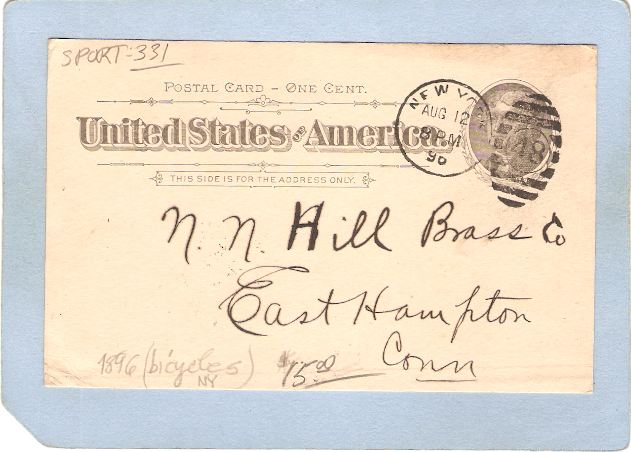 SPORT-331
POSTAL CARD - ONE CENT.
United States of America.
THIS SIDE IS FOR THE ADDRESS ONLY.
NEW YO
AUG 12
8 PM
96
18
N. N. Hill Brass Co
East Hampton
Conn
1896 (bicycles)
NY
$15.00